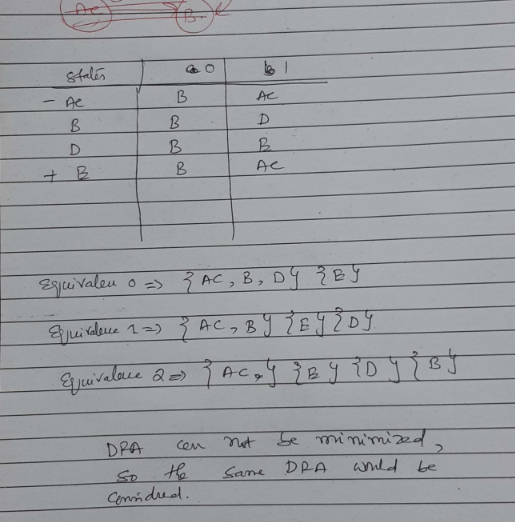 AC B
States 0 1
- AC B AC
B B D
D B E
+ E B AC
Equivalen 0 => {AC, B, D} {E}
Equivalence 1 => {AC, B} {E} {D}
Equivalence 2 => {AC,} {B} {D} {E}
DRA can not be minimized,
so the same DRA would be
Considred.